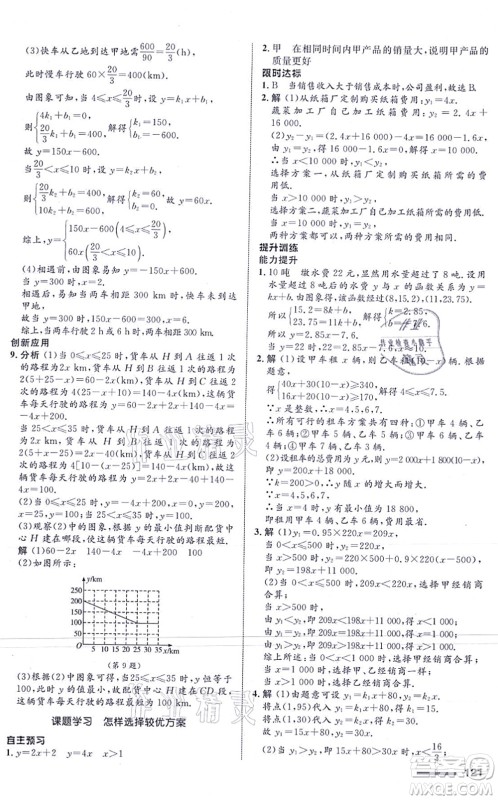 (3)快车从乙地到达甲地需600/90=20/3(h),
此时慢车行驶60×20/3=400(km).
由图象可知,当4≤x≤20/3时,设y=k₁x+b₁,
则{4k₁+b₁=0, 20/3k₁+b₁=400, 解得{k₁=150, b₁=-600.
故y=150x-600.
当20/3<x≤10时,设y=k₂x+b₂,
则{20/3k₂+b₂=400, 10k₂+b₂=600, 解得{k₂=60, b₂=0.
故y=60x.
综上,y={150x-600(4≤x≤20/3), 60x(20/3<x≤10).
(4)相遇前,由图象易知y=-150x+600.
当y=300时,x=2.
相遇后,由(3)得y=150x-600.
当y=300时,x=6.
故两车行驶2h或6h时,两车相距300km.
创新应用
9.分析 (1)当0≤x≤25时,货车从H到A往返1次
的路程为2x km.
货车从H到B往返1次的路程为
2(5+25-x)=60-2x(km),
货车从H到C往返2次的路程为
4(25-x+10)=140-4x(km),
这辆货车每天行驶的路程为
y=60-2x+2x+140-4x=-4x+200.
当25<x≤35时,货车从H到A往返1次的路程
为2x km,货车从H到B往返1次的路程为
2(5+x-25)=2x-40(km),
货车从H到C往返2次的路程为
4[10-(x-25)]=140-4x(km),故这
辆货车每天行驶的路程为
y=2x+2x-40+140-4x=100.
(2)分别求出0≤x≤25时及25<x≤35时的函数
图象即可.
(3)观察(2)中的图象,根据y的最小值判断货场
H建在哪段,使得这辆货车每天行驶的路程最短.
解 (1)60-2x 140-4x -4x+200 100
(2)如图所示.
y/km
250
200
150
100
50
0 5 10 15 20 25 30 35 x/km
(第9题)
(3)根据(2)图象可得,当25≤x≤35时,y恒等于
100km,此时y的值最小,得出配货中心H建CD段,
这辆货车每天行驶的路程最短,最短路程为100km.
课题学习 怎样选择较优方案
自主预习
1.y=2x+2 y=4x x>1
2.甲 在相同时间内甲产品的销量大,说明甲产品的
质量更好
限时达标
1.B 当销售收入大于销售成本时,公司盈利,故选B.
2.解 (1)从纸箱厂定制购买纸箱费用:y₁=4x.
蔬菜加工厂自己加工纸箱费用:y₂=2.4x+
16 000.
(2)y₂-y₁=(2.4x+16 000)-4x=16 000-1.6x,
由y₁=y₂,得16 000-1.6x=0,解得x=10 000.
∴当x<10 000时,y₁<y₂,
选择方案一,从纸箱厂定制购买纸箱所需的费用低.
∴当x>10 000时,y₁>y₂,
选择方案二,蔬菜加工厂自己加工纸箱所需的费用低.
∴当x=10 000时,y₁=y₂,
两种方案都可以,两种方案所需的费用相同.
提升训练
能力提升
1.10吨 缴水费22元,显然用水量超过了8吨,设用
水量超过8吨后,y与x的函数关系为y=kx+b,
所以{15.2=8k+b, 23.75=11k+b, 解得
当y=22时,22.8=
2.解 (1)设甲车租x辆,则乙车租(10-x)辆.根据
题意,得
{40x+30(10-x)≥340, 16x+20(10-x)≥170, 解得4≤x≤7.5.
∵x是整数,
∴x=4,5,6,7.
∴所有可行的租车方案共有四种:①甲车4辆,乙车
6辆;②甲车5辆,乙车5辆;③甲车6辆,乙车4辆;
④甲车7辆,乙车3辆.
(2)设租车的总费用为y元,则y=2 000x+1 800(10-x),
即y=200x+18 000.
∵k=200>0,∴y随x的增大而增大.
∵x=4,5,6,7,
∴当x=4时,y有最小值.
即,租用甲车4辆、乙车6辆,费用最省.
3.解 (1)y₁=0.95×220x=209x,
当0<x≤500时,y₂=220x,
当x>500时,y₂=220×500+0.9×220(x-500),
即y₂=198x+11 000.
(2)当0<x≤500时,209x<220x,选择甲经销商;
当x>500时,
由y₁<y₂,即209x<198x+11 000,得x<1 000;
由y₁=y₂,即209x=198x+11 000,得x=1 000;
由y₁>y₂,即209x>198x+11 000,得x>1 000.
综上所述:当0<x<1 000时,选择甲经销商合算;
当x=1 000时,选择甲、乙经销商一样合算;
当x>1 000时,选择乙经销商合算.
4.解 (1)设y₁=k₁x+80,
将点(1,95)代入,得95=k₁+80,解得k₁=15,
则y₁=15x+80(x≥0).
设y₂=k₂x.
将点(1,30)代入,得k₂=30,
则y₂=30x(x≥0).
(2)当y₁>y₂时,15x+80>30x,解得x<16/3;
当y₁=y₂时,15x+80=30x,解得x=
121